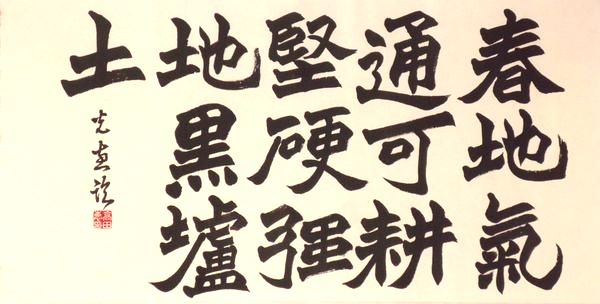 春地氣
通可耕
堅硬强
地黑壚
土